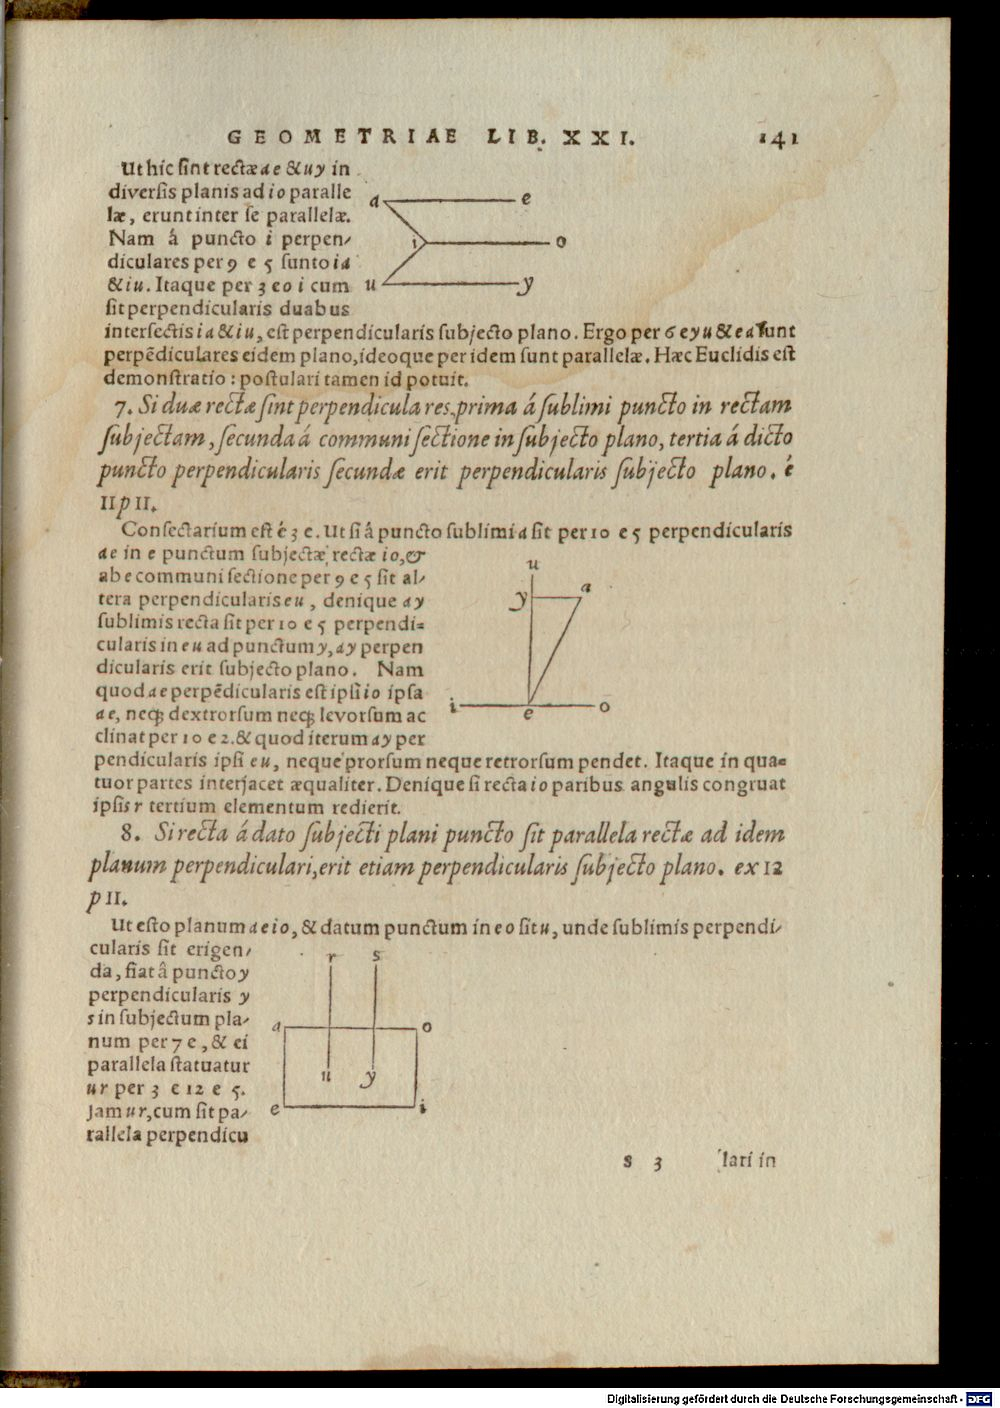 GEOMETRIAE LIB. XXI. 141
Ut hic sint rectæ ae & uy in
diversis planis ad io paralle
læ, erunt inter se parallelæ.
Nam á puncto i perpen-
diculares per 9 e 5 sunto ia
& iu. Itaque per 3 e o i cum
sit perpendicularis duabus
intersectis ia & iu, est perpendicularis subjecto plano. Ergo per 6 e yu & ea sunt
perpẽdiculares eidem plano, ideoque per idem sunt parallelæ. Hæc Euclidis est
demonstratio: postulari tamen id potuit.
a e
i o
u y
7. Si duæ rectæ sint perpendiculares, prima á sublimi puncto in rectam
subjectam, secunda á communi sectione in subjecto plano, tertia á dicto
puncto perpendicularis secundæ erit perpendicularis subjecto plano. é
11 p 11.
Consectarium est é 3 e. Ut si á puncto sublimi a sit per 10 e 5 perpendicularis
ae in e punctum subjectæ rectæ io, &
ab e communi sectione per 9 e 5 sit al-
tera perpendicularis eu, denique ay
sublimis recta sit per 10 e 5 perpendi=
cularis in eu ad punctum y, ay perpen
dicularis erit subjecto plano. Nam
quod ae perpẽdicularis est ipsi io ipsa
ae, neq; dextrorsum neq; levorsum ac
clinat per 10 e 2. & quod iterum ay per
pendicularis ipsi eu, neque prorsum neque retrorsum pendet. Itaque in qua=
tuor partes interjacet æqualiter. Denique si recta io paribus angulis congruat
ipsis r tertium elementum redierit.
u
y a
i e o
8. Si recta á dato subjecti plani puncto sit parallela rectæ ad idem
planum perpendiculari, erit etiam perpendicularis subjecto plano. ex 12
p 11.
Ut esto planum aeio, & datum punctum in eo sit u, unde sublimis perpendi-
cularis sit erigen-
da, fiat â puncto y
perpendicularis y
s in subjectum pla-
num per 7 e, & ei
parallela statuatur
ur per 3 e 12 e 5.
Jam ur, cum sit pa-
rallela perpendicu
r s
a o
u y
e i
s 3 lari in
Digitalisierung gefördert durch die Deutsche Forschungsgemeinschaft - DFG